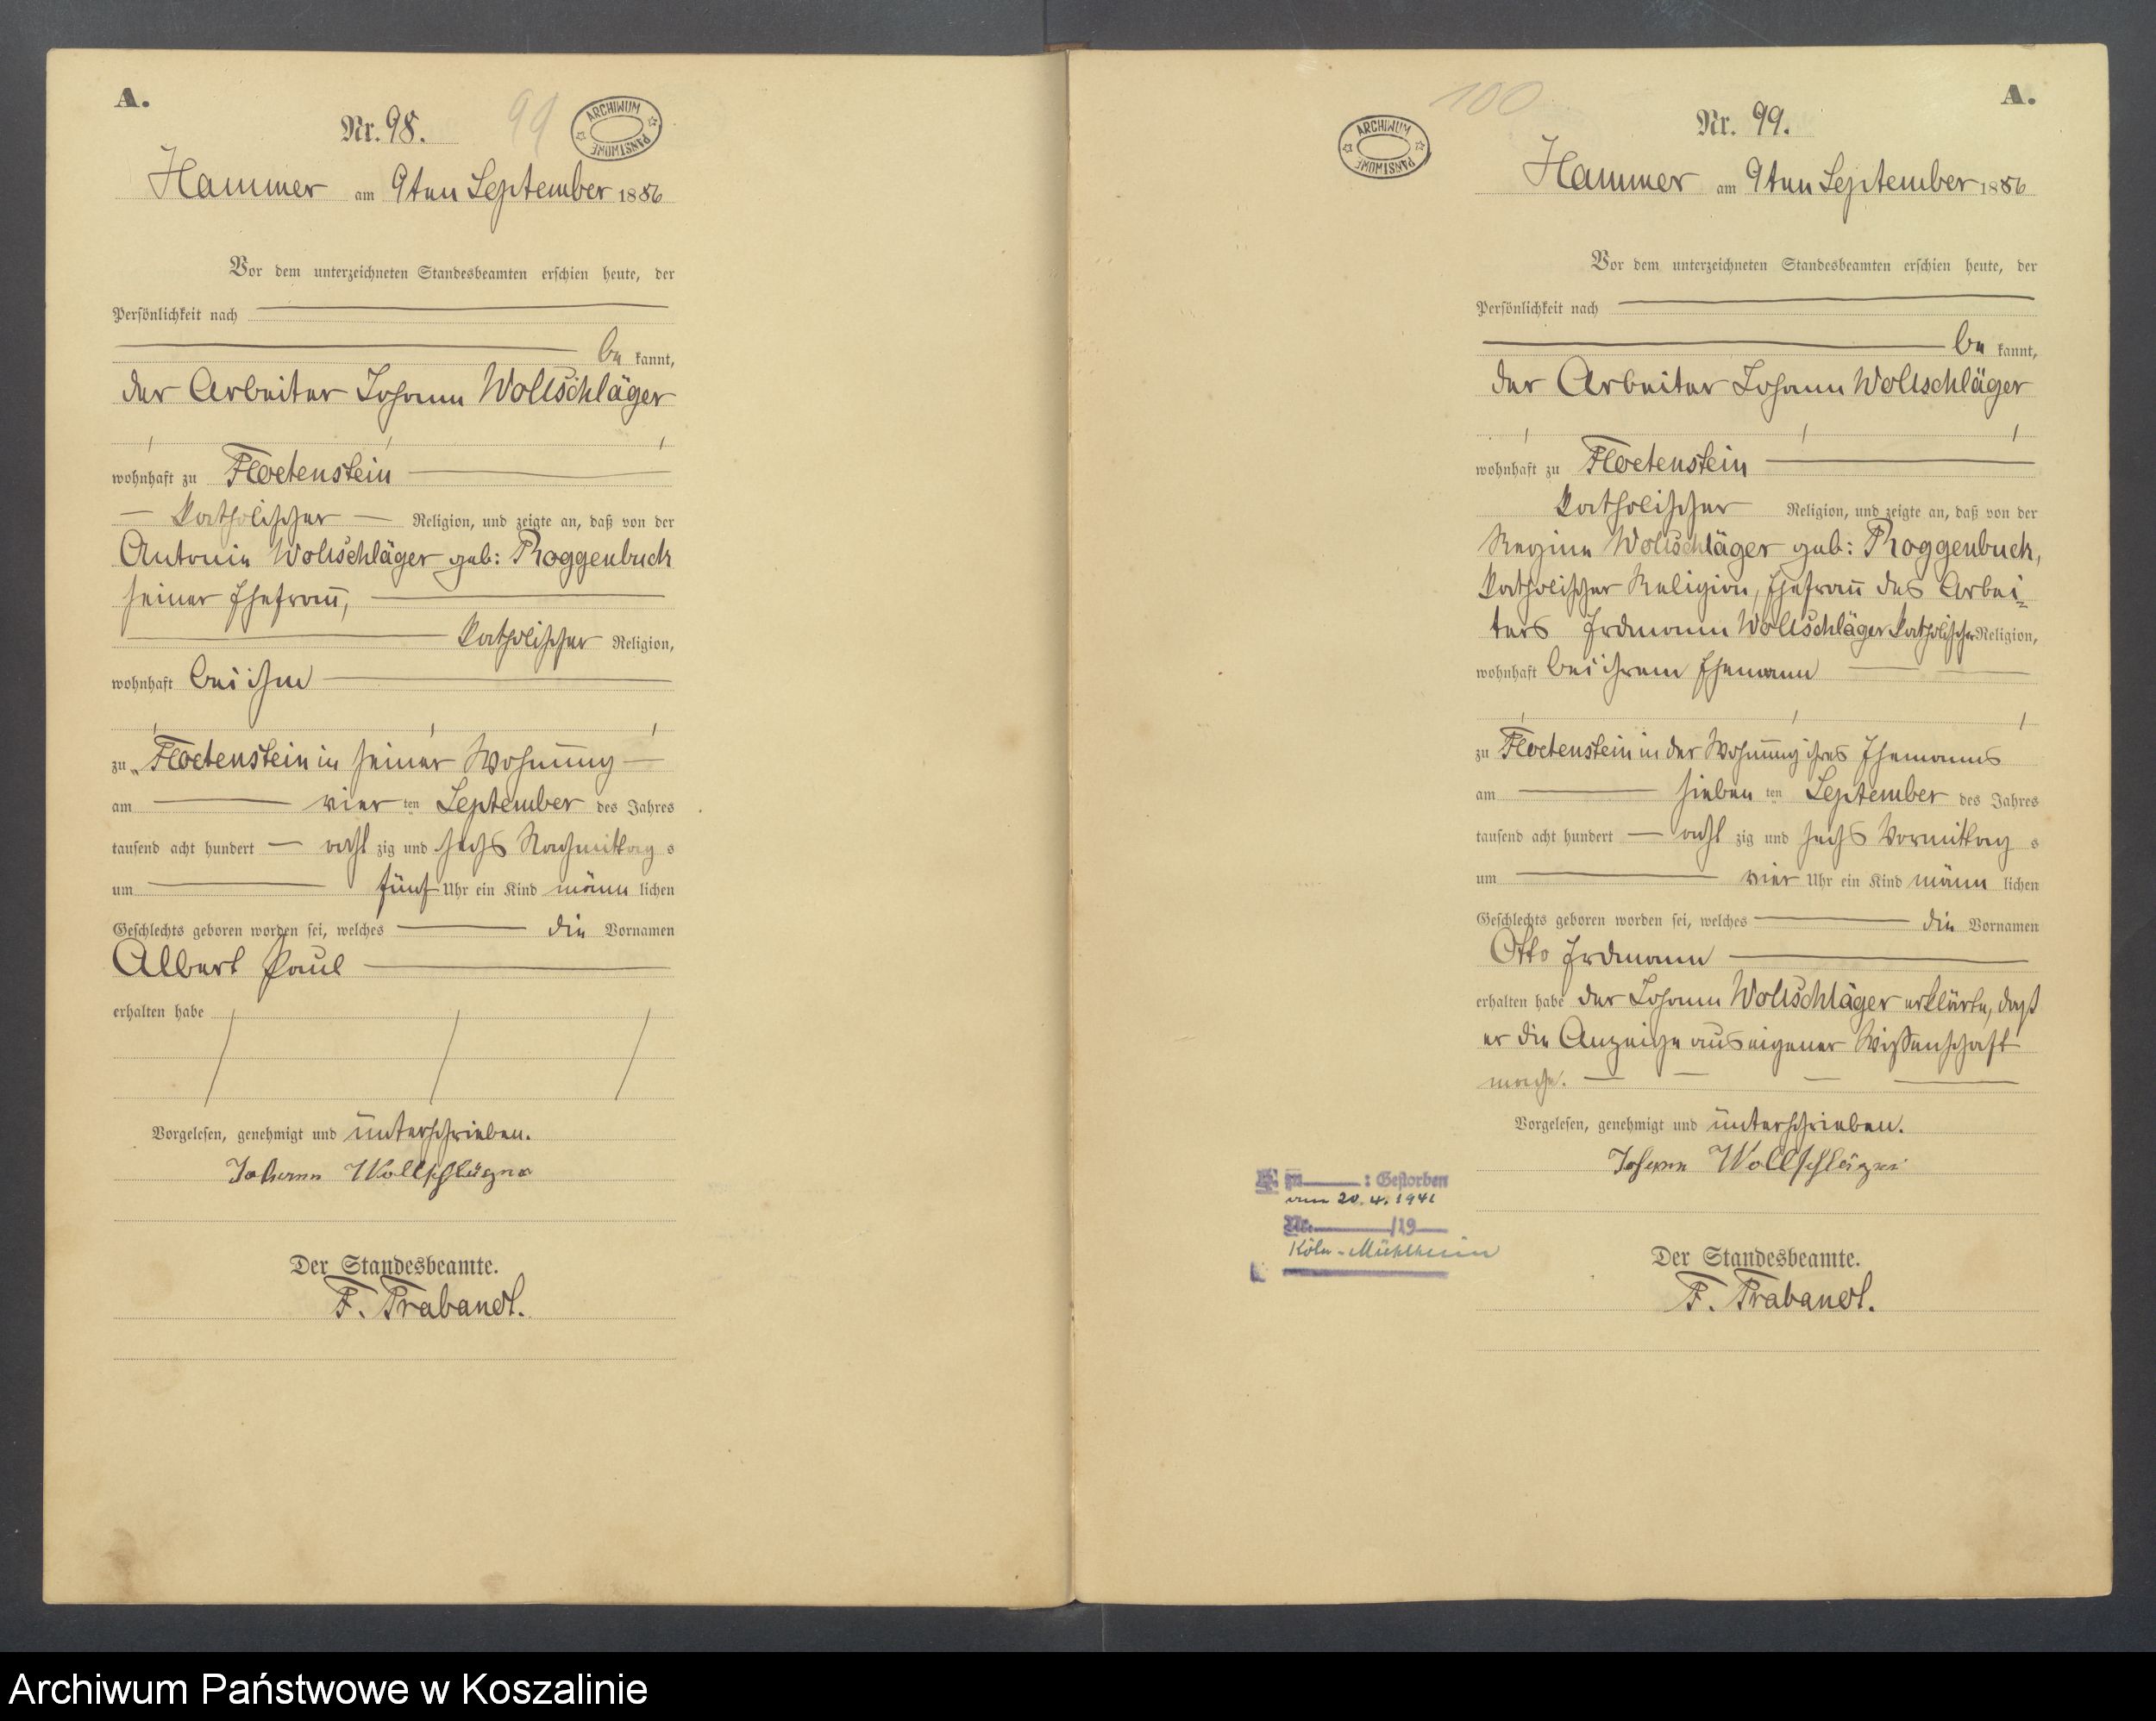 A.
Nr. 98.
99
ARCHIWUM PAŃSTWOWE
Hammer am 9ten September 1886
Vor dem unterzeichneten Standesbeamten erschien heute, der
Persönlichkeit nach
be kannt,
der Arbeiter Johann Wollschläger
wohnhaft zu Floetenstein
katholischer Religion, und zeigte an, daß von der
Antonie Wollschläger geb: Roggenbuck
seiner Ehefrau,
katholischer Religion,
wohnhaft bei ihm
zu Floetenstein in seiner Wohnung
am vier ten September des Jahres
tausend acht hundert acht zig und sechs Nachmittag s
um fünf Uhr ein Kind männ lichen
Geschlechts geboren worden sei, welches die Vornamen
Albert Paul
erhalten habe
Vorgelesen, genehmigt und unterschrieben.
Johann Wollschläger
Der Standesbeamte.
F. Trabandt.
A.
Nr. 99.
100
ARCHIWUM PAŃSTWOWE
Hammer am 9ten September 1886
Vor dem unterzeichneten Standesbeamten erschien heute, der
Persönlichkeit nach
be kannt,
der Arbeiter Johann Wollschläger
wohnhaft zu Floetenstein
katholischer Religion, und zeigte an, daß von der
Regine Wollschläger geb: Roggenbuck,
katholischer Religion, Ehefrau des Arbei-
ters Erdmann Wollschläger katholischer Religion,
wohnhaft bei ihrem Ehemann
zu Floetenstein in der Wohnung ihres Ehemanns
am sieben ten September des Jahres
tausend acht hundert acht zig und sechs Vormittag s
um vier Uhr ein Kind männ lichen
Geschlechts geboren worden sei, welches die Vornamen
Otto Erdmann
erhalten habe der Johann Wollschläger erklärte, daß
er die Anzeige aus eigener Wissenschaft
mache.
Vorgelesen, genehmigt und unterschrieben.
Johann Wollschläger
Der Standesbeamte.
F. Trabandt.
: Gestorben
am 20.4.1941
Nr. /19
Köln-Mühlheim
Archiwum Państwowe w Koszalinie